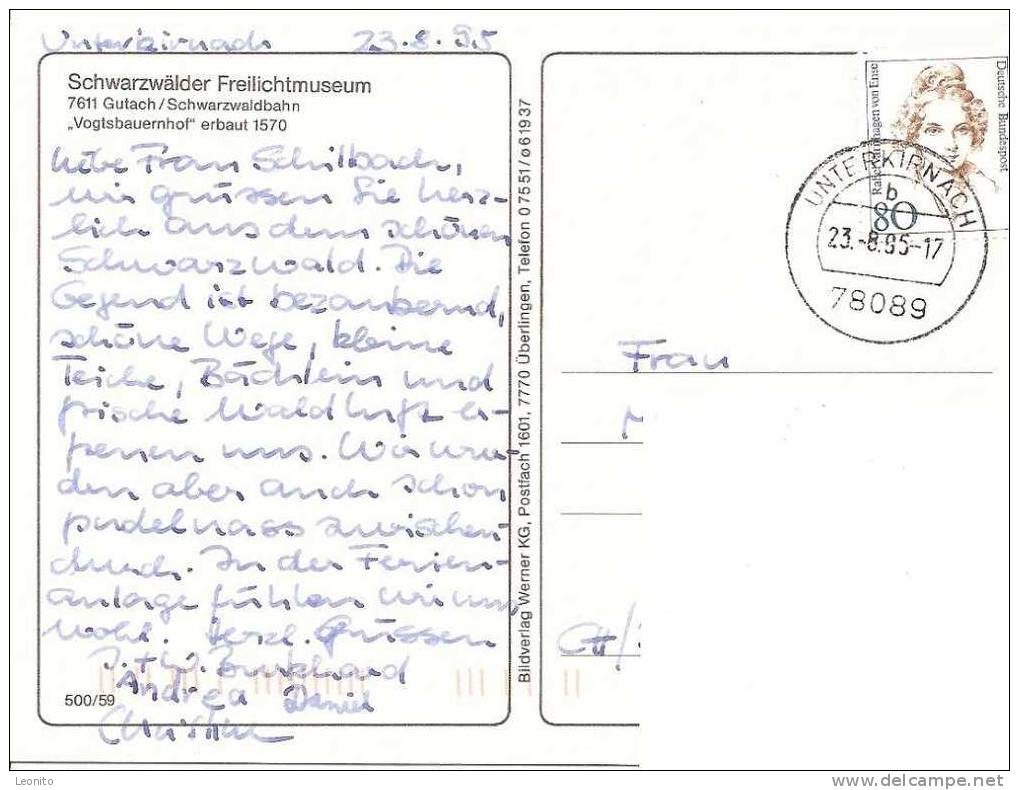 Unterkirnach 23.8.95
Schwarzwälder Freilichtmuseum
7611 Gutach/Schwarzwaldbahn
„Vogtsbauernhof" erbaut 1570
Liebe Frau Schillbach,
wir grüssen Sie herz-
lich aus dem schönen
Schwarzwald. Die
Gegend ist bezaubernd,
schöne Wege, kleine
Teiche, Bächlein und
frische Waldluft er-
freuen uns. Wir wur-
den aber auch schon
pudelnass zwischen-
durch. In der Ferien-
anlage fühlen wir uns
wohl. Herzl. Grüssen
J. + W. Burkhard
Andrea Daniel
Christine
500/59
Bildverlag Werner KG, Postfach 1601, 7770 Überlingen, Telefon 07551/o61937
Deutsche Bundespost
Rahel Varnhagen von Ense
80
UNTERKIRNACH
b
23.-8.95-17
78089
Frau
CH/
Leonito
www.delcampe.net